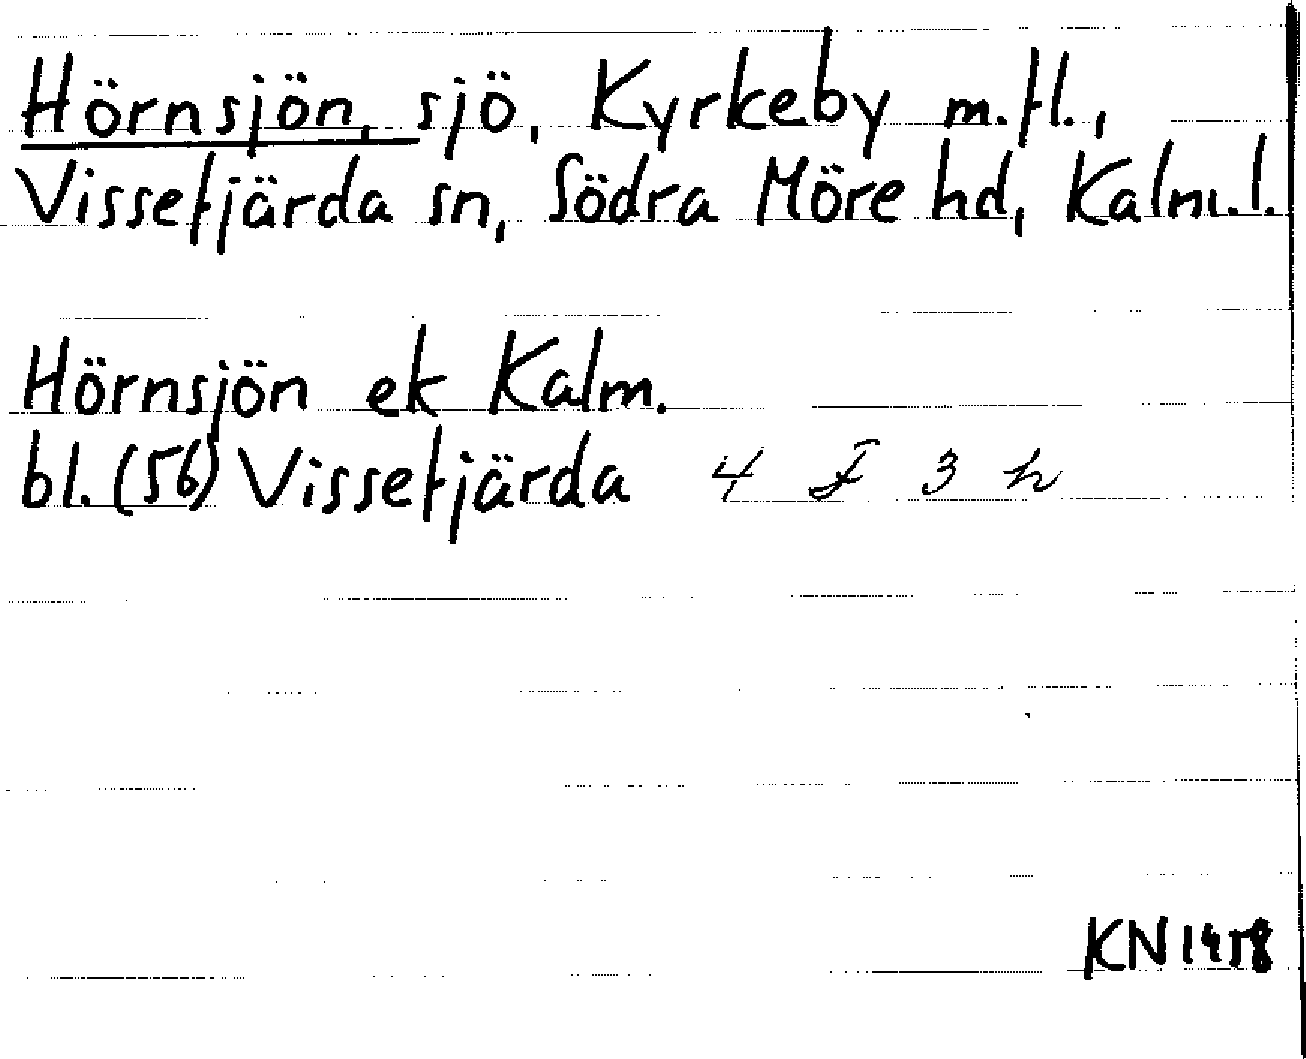 Hörnsjön, sjö, Kyrkeby m.fl.,
Vissefjärda sn, Södra Möre hd, Kalm.l.
Hörnsjön ek Kalm.
bl. (56) Vissefjärda 4 F 3 h
KN 1458